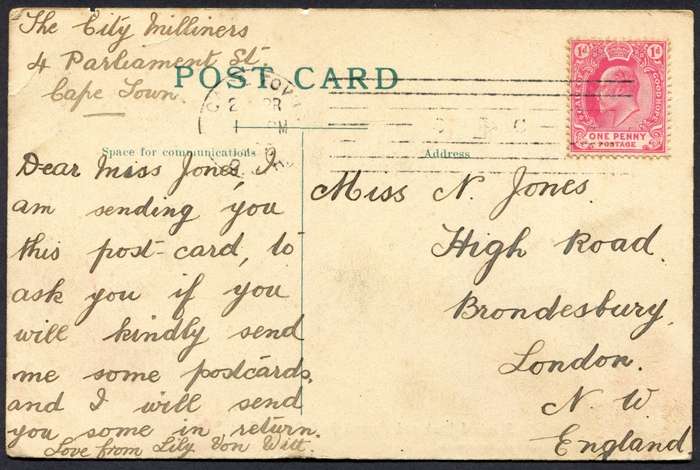 The City Milliners
4 Parliament St.
Cape Town.
POST CARD
1d 1d
GOOD HOPE
ONE PENNY
POSTAGE
Space for communications
Address
Dear Miss Jones, I
am sending you
this post-card, to
ask you if you
will kindly send
me some postcards,
and I will send
you some in return.
Love from Lily Von Witt.
Miss N. Jones.
High Road.
Brondesbury,
London.
N W
England